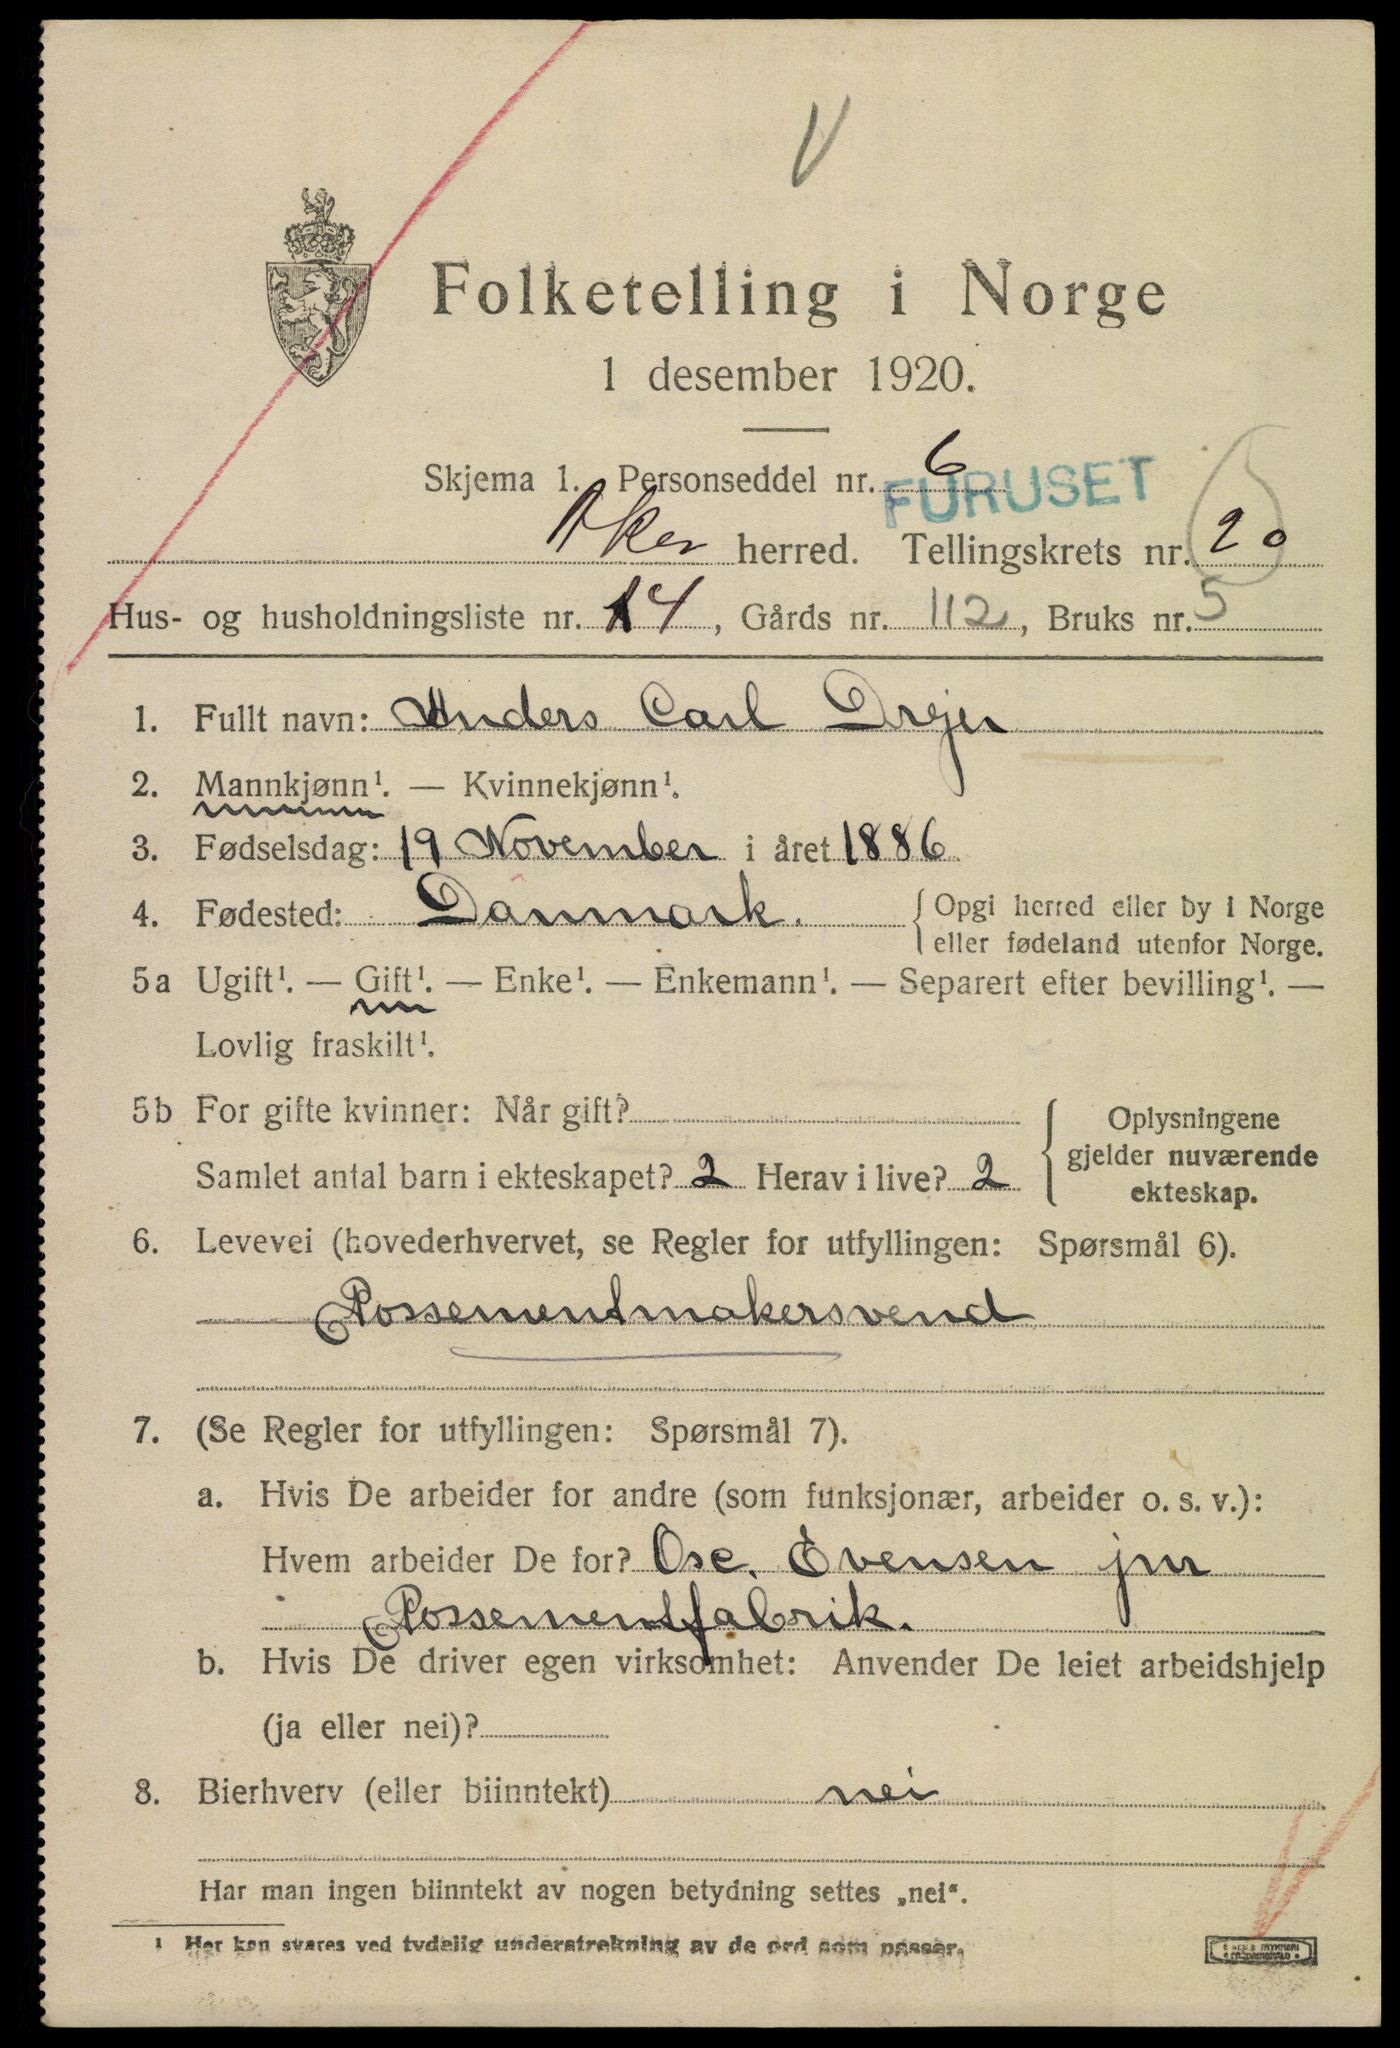 V
Folketelling i Norge
1 desember 1920.
Skjema 1. Personseddel nr. 6
FURUSET
Aker herred. Tellingskrets nr. 20
Hus- og husholdningsliste nr. 14, Gårds nr. 112, Bruks nr. 5
1. Fullt navn: Anders Carl Drejer
2. Mannkjønn¹. — Kvinnekjønn¹.
3. Fødselsdag: 19 November i året 1886
4. Fødested: Danmark. Opgi herred eller by i Norge
eller fødeland utenfor Norge.
5a Ugift¹. — Gift¹. — Enke¹. — Enkemann¹. — Separert efter bevilling¹. —
Lovlig fraskilt¹.
5b For gifte kvinner: Når gift?
Samlet antal barn i ekteskapet? 2 Herav i live? 2
Oplysningene
gjelder nuværende
ekteskap.
6. Levevei (hovederhvervet, se Regler for utfyllingen: Spørsmål 6).
Possementmakersvend
7. (Se Regler for utfyllingen: Spørsmål 7).
a. Hvis De arbeider for andre (som funksjonær, arbeider o. s. v.):
Hvem arbeider De for? Osc. Evensen jnr
Possementfabrik.
b. Hvis De driver egen virksomhet: Anvender De leiet arbeidshjelp
(ja eller nei)?
8. Bierhverv (eller biinntekt) nei
Har man ingen biinntekt av nogen betydning settes „nei“.
¹ Her kan svares ved tydelig understrekning av de ord som passer.